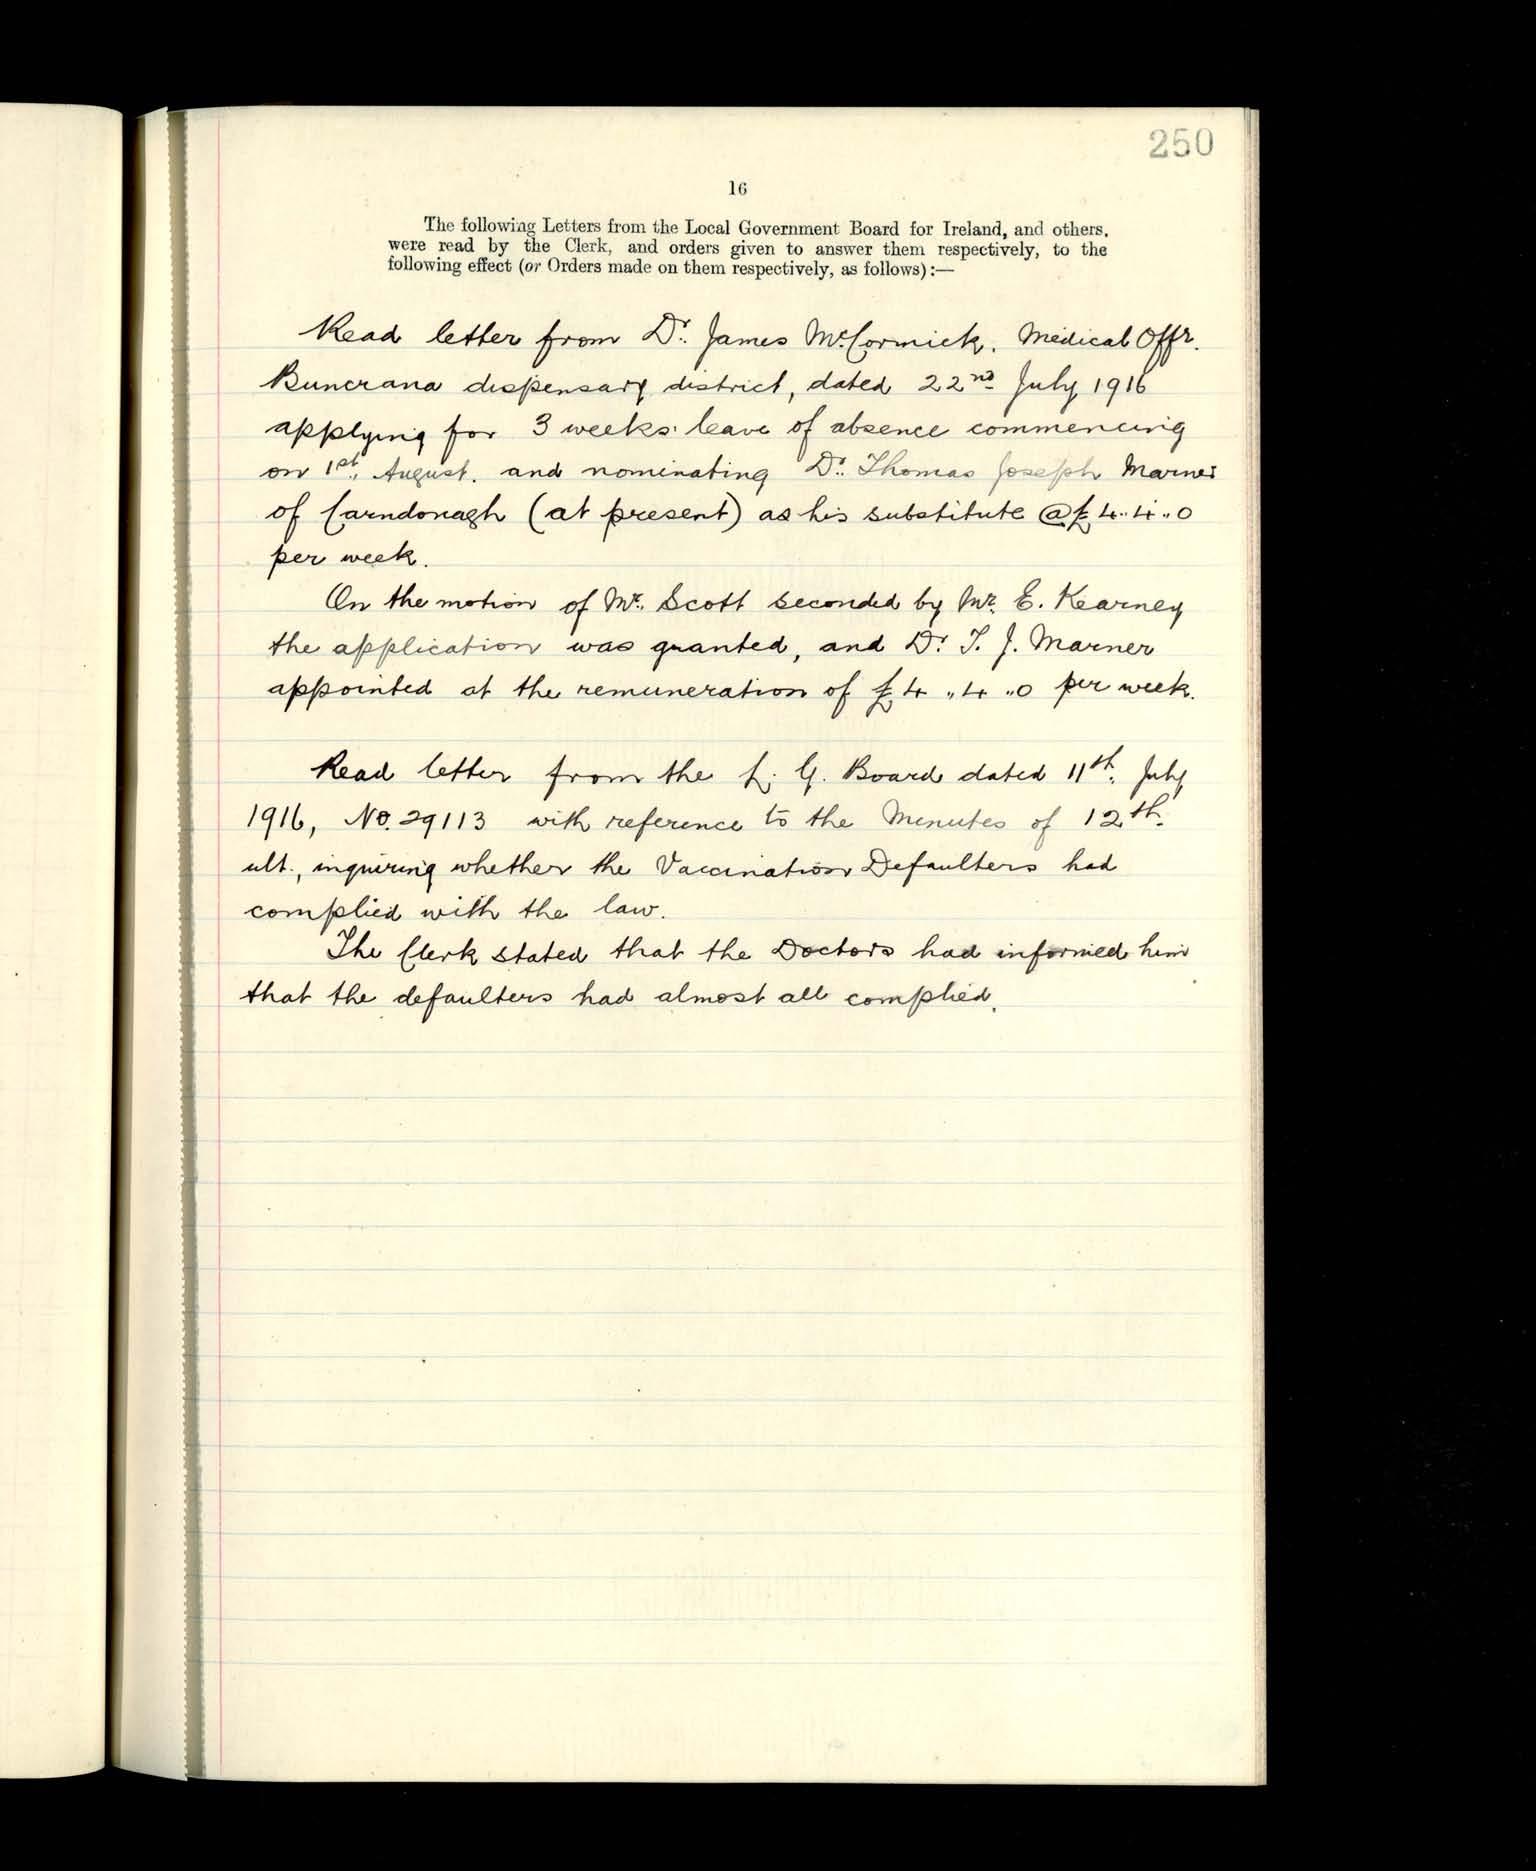 250
16
The following Letters from the Local Government Board for Ireland, and others,
were read by the Clerk, and orders given to answer them respectively, to the
following effect (or Orders made on them respectively, as follows):—
Read letter from Dr. James McCormick. Medical Offr.
Buncrana dispensary district, dated 22nd July 1916
applying for 3 weeks' leave of absence commencing
on 1st August. and nominating Dr. Thomas Joseph Marner
of Carndonagh (at present) as his substitute @ £4..4..0
per week.
On the motion of Mr. Scott seconded by Mr. E. Kearney
the application was granted, and Dr. T. J. Marner
appointed at the remuneration of £4 ,,4 ,,0 per week.
Read letter from the L. G. Board dated 11th. July
1916, No. 29113 with reference to the Minutes of 12th.
ult., inquiring whether the Vaccination Defaulters had
complied with the law.
The Clerk stated that the Doctors had informed him
that the defaulters had almost all complied.